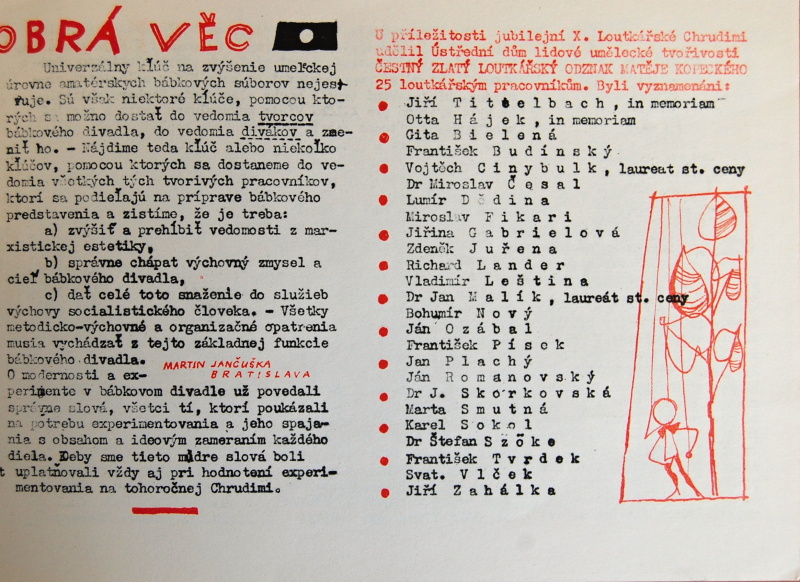 OBRÁ VĚC
Univerzálny kľúč na zvýšenie umeľckej
úrovne amatérskych bábkových súborov nejest-
vuje. Sú však niektoré kľúče, pomocou kto-
rých sa možno dostať do vedomia tvorcov
bábkového divadla, do vedomia divákov a zme-
niť ho. - Nájdime teda kľúč alebo niekoľko
kľúčov, pomocou ktorých sa dostaneme do ve-
domia všetkých tých tvorivých pracovníkov,
ktorí sa podieľajú na príprave bábkového
predstavenia a zistíme, že je treba:
a) zvýšiť a prehĺbiť vedomosti z mar-
xistickej estetiky,
b) správne chápať výchovný zmysel a
cieľ bábkového divadla,
c) dať celé toto snaženie do služieb
výchovy socialistického človeka. - Všetky
metodicko-výchovné a organizačné opatrenia
musia vychádzať z tejto základnej funkcie
bábkového divadla.
MARTIN JANČUŠKA
BRATISLAVA
O modernosti a ex-
perimente v bábkovom divadle už povedali
správne slová, všetci tí, ktorí poukázali
na potrebu experimentovania a jeho spaja-
nia s obsahom a ideovým zameraním každého
diela. Keby sme tieto múdre slová boli
uplatňovali vždy aj pri hodnotení experi-
mentovania na tohoročnej Chrudimi.
U příležitosti jubilejní X. Loutkářské Chrudimi
udělil Ústřední dům lidové umělecké tvořivosti
ČESTNÝ ZLATÝ LOUTKÁŘSKÝ ODZNAK MATĚJE KOPECKÉHO
25 loutkářským pracovníkům. Byli vyznamenáni:
Jiří Tittelbach, in memoriam
Otta Hájek, in memoriam
Gita Bielená
František Budínský
Vojtěch Cinybulk, laureat st. ceny
Dr Miroslav Česal
Lumír Dědina
Miroslav Fikari
Jiřina Gabrielová
Zdeněk Juřena
Richard Lander
Vladimír Leština
Dr Jan Malík, laureát st. ceny
Bohumír Nový
Ján Ozábal
František Písek
Jan Plachý
Ján Romanovský
Dr J. Skorkovská
Marta Smutná
Karel Sokol
Dr Štefan Szöke
František Tvrdek
Svat. Vlček
Jiří Zahálka